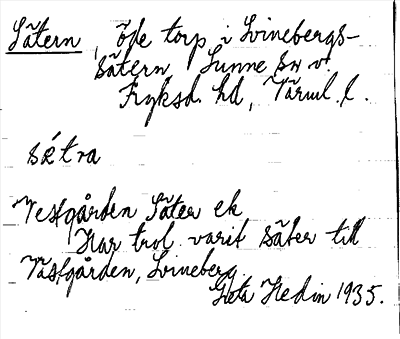 Sätern, öde torp i Svinebergs-
sätern Sunne sn v.
Fryksd. hd, Värml. l.
sétra
Västgården Säter ek
Har trol. varit säter till
Västgården, Svineberg.
Greta Hedin 1935.